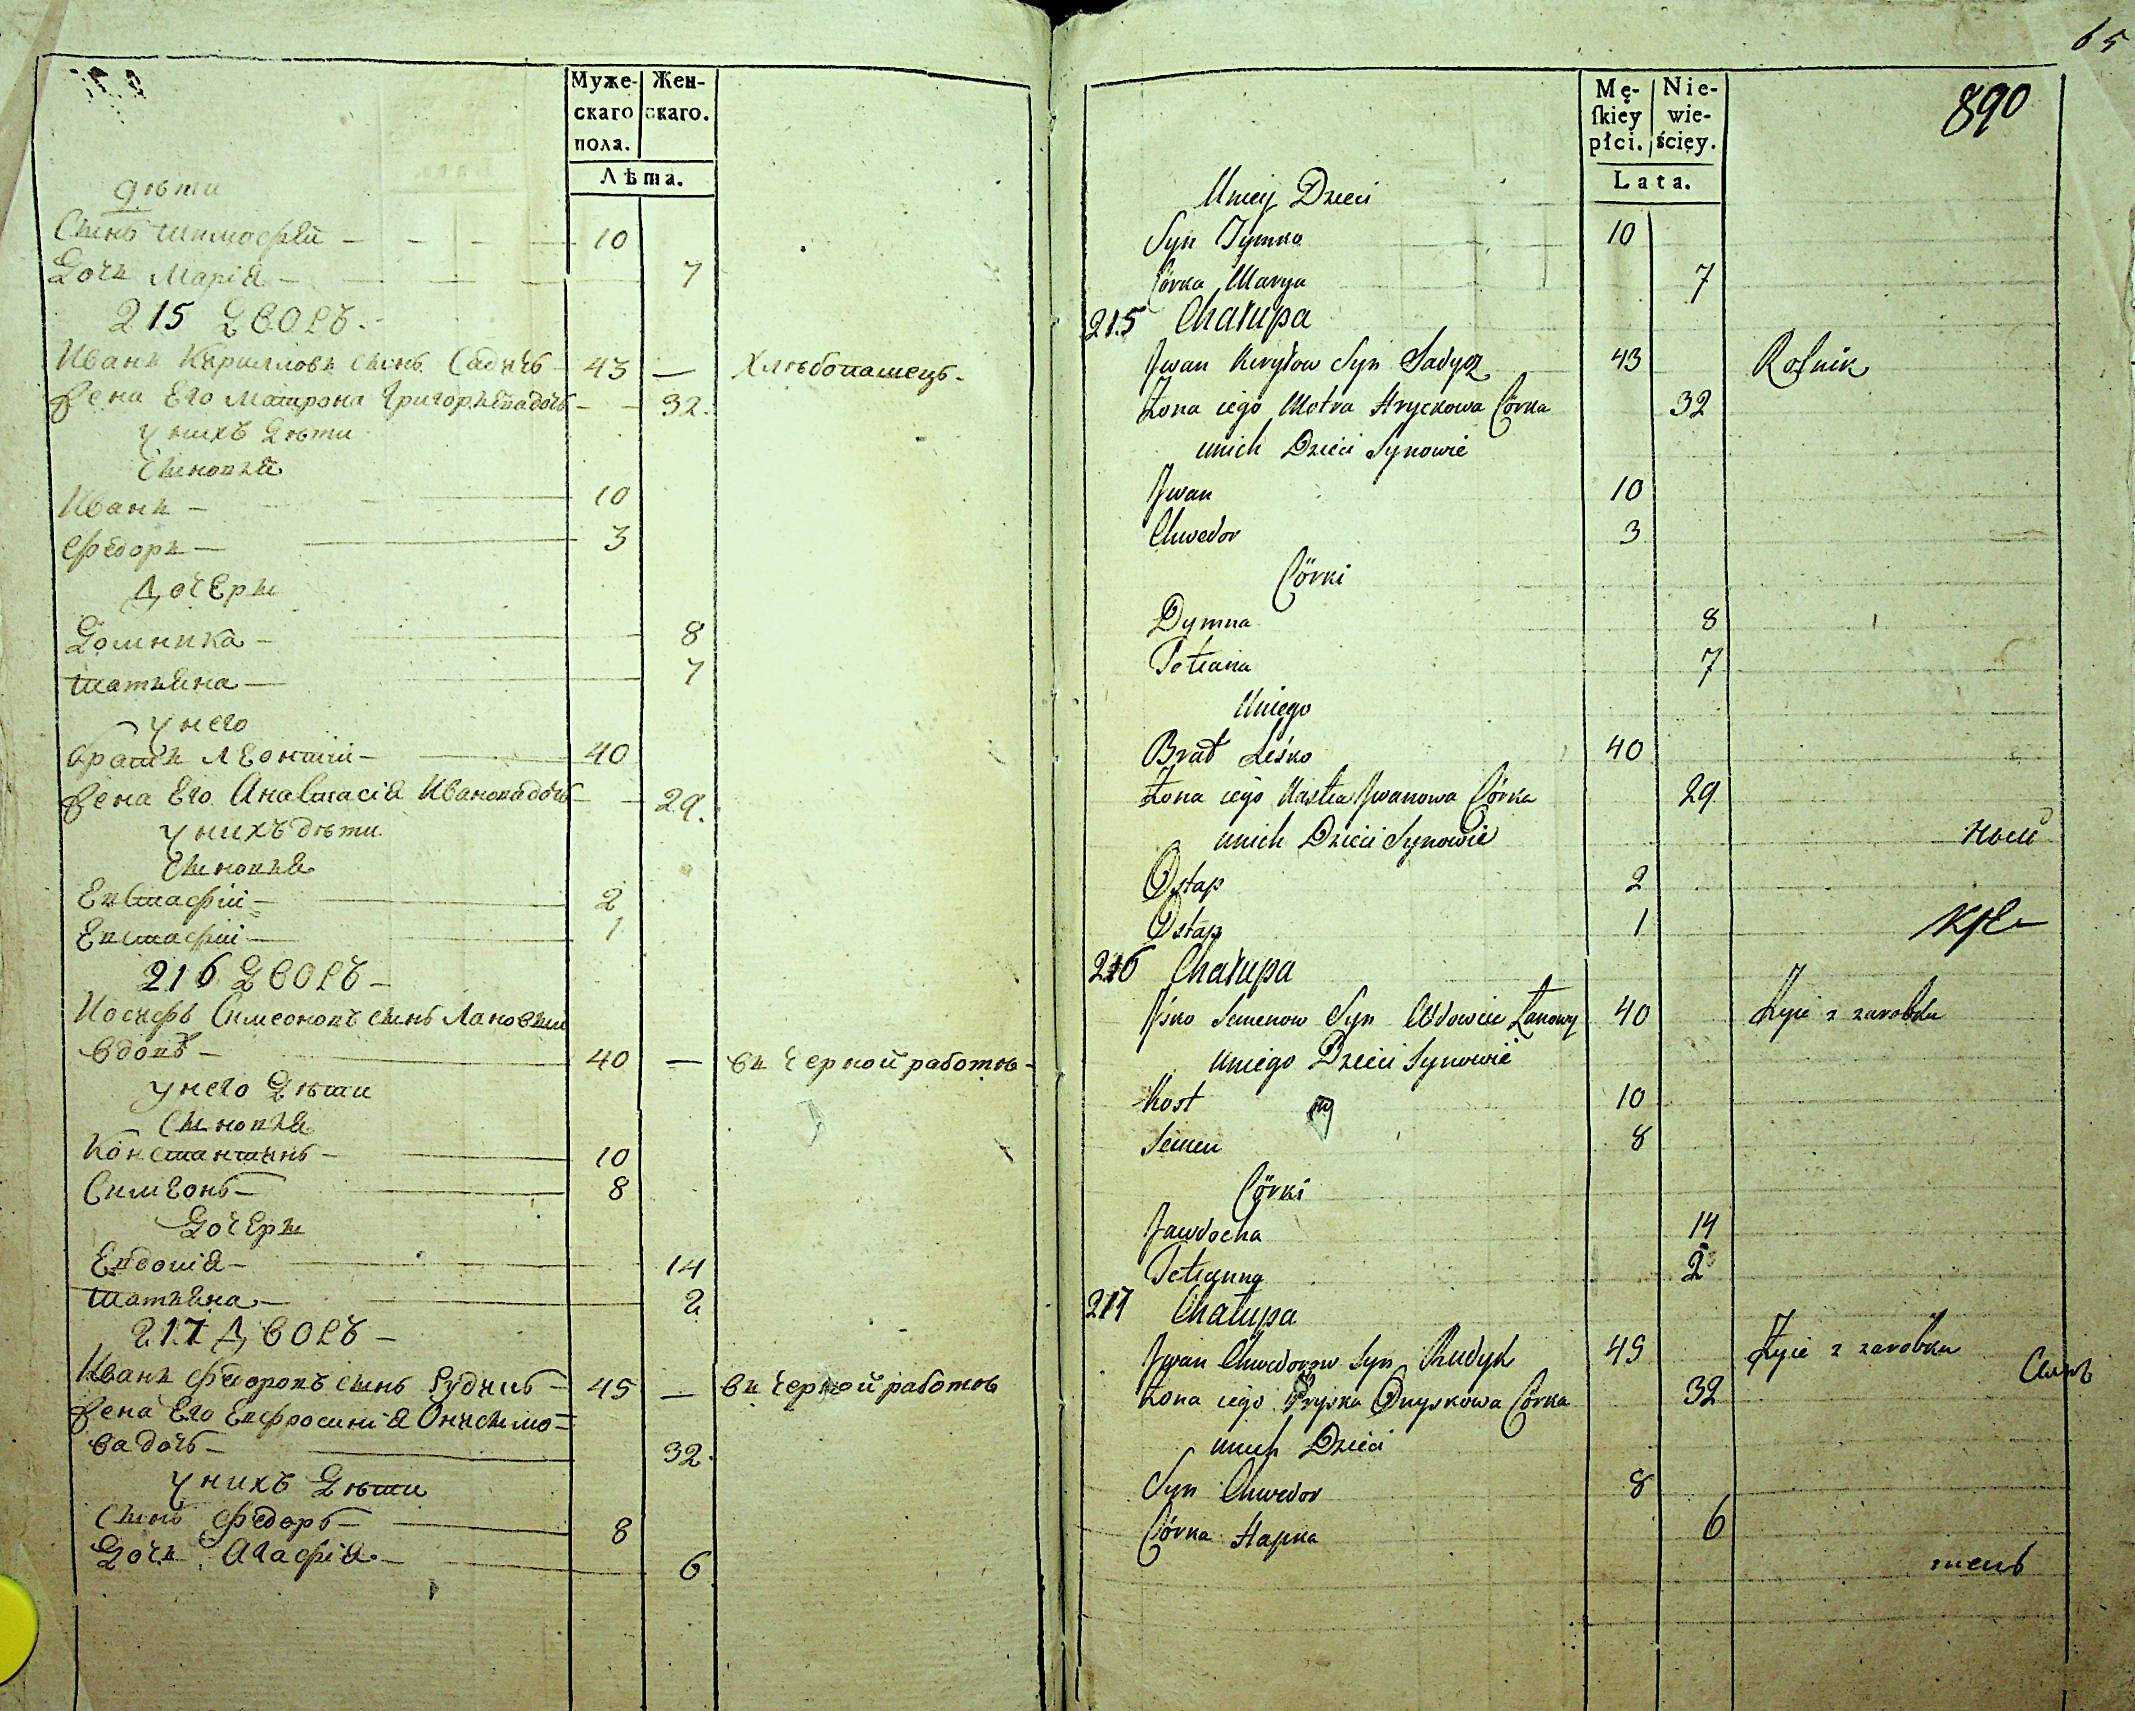 Муже-
скаго
пола.
Жен-
скаго.
Лѣта.
дѣти
Сынъ Тимофѣй — 10
Дочь Марія — 7
215 Дворъ.
Иванъ Кирилловъ сынъ Садичъ — 43 — Хлѣбопашецъ.
Жена Его Матрона Григорьева дочь — 32.
у нихъ дѣти
Сыновья
Иванъ — 10
Федоръ — 3
Дочери
Домника — 8
Татьяна — 7
у него
братъ Леонтій — 40
Жена Его Анастасія Иванова дочь — 29.
у нихъ дѣти
Сыновья
Евстафій — 2
Евстафій — 1
216 Дворъ —
Иосифъ Симеоновъ сынъ Лановый
вдовъ — 40 — въ черной работѣ —
у него Дѣти
Сыновья
Константинъ — 10
Симеонъ — 8
Дочери
Евдокія — 14
Татьяна — 2
217 Дворъ —
Иванъ Федоровъ сынъ Рудикъ — 45 — въ черной работѣ
Жена Его Евфросинія Онисимо=
ва дочь — 32.
у нихъ Дѣти
Сынъ Федоръ — 8
Дочь Агафія — 6
65
890
Mę-
ſkiey
płci.
Nie-
wie-
ściey.
Lata.
Uniey Dzieci
Syn Tymko 10
Córka Marya 7
215 Chałupa
Jwan Kiryłow Syn Sadycz 43 Rolnik
Żona iego Motra Hryckowa Córka 32
unich Dzieci Synowie
Jwan 10
Chwedor 3
Córki
Dymna 8
Tetiana 7
Uniego
Brat Leśko 40
Żona iego Nastia Jwanowa Córka 29
unich Dzieci Synowie
Ostap 2
Ostap 1
216 Chałupa
Jśko Semenow Syn Wdowiec Łanowy 40 Żyie z zarobku
Uniego Dzieci Synowie
Kost 10
Semen 8
Córki
Jawdocha 14
Tetianna 2
217 Chałupa
Jwan Chwedorow Syn Rudyk 45 Żyie z zarobku
Żona iego Pryska Onyskowa Córka 32
unich Dzieci
Syn Chwedor 8
Córka Hapka 6